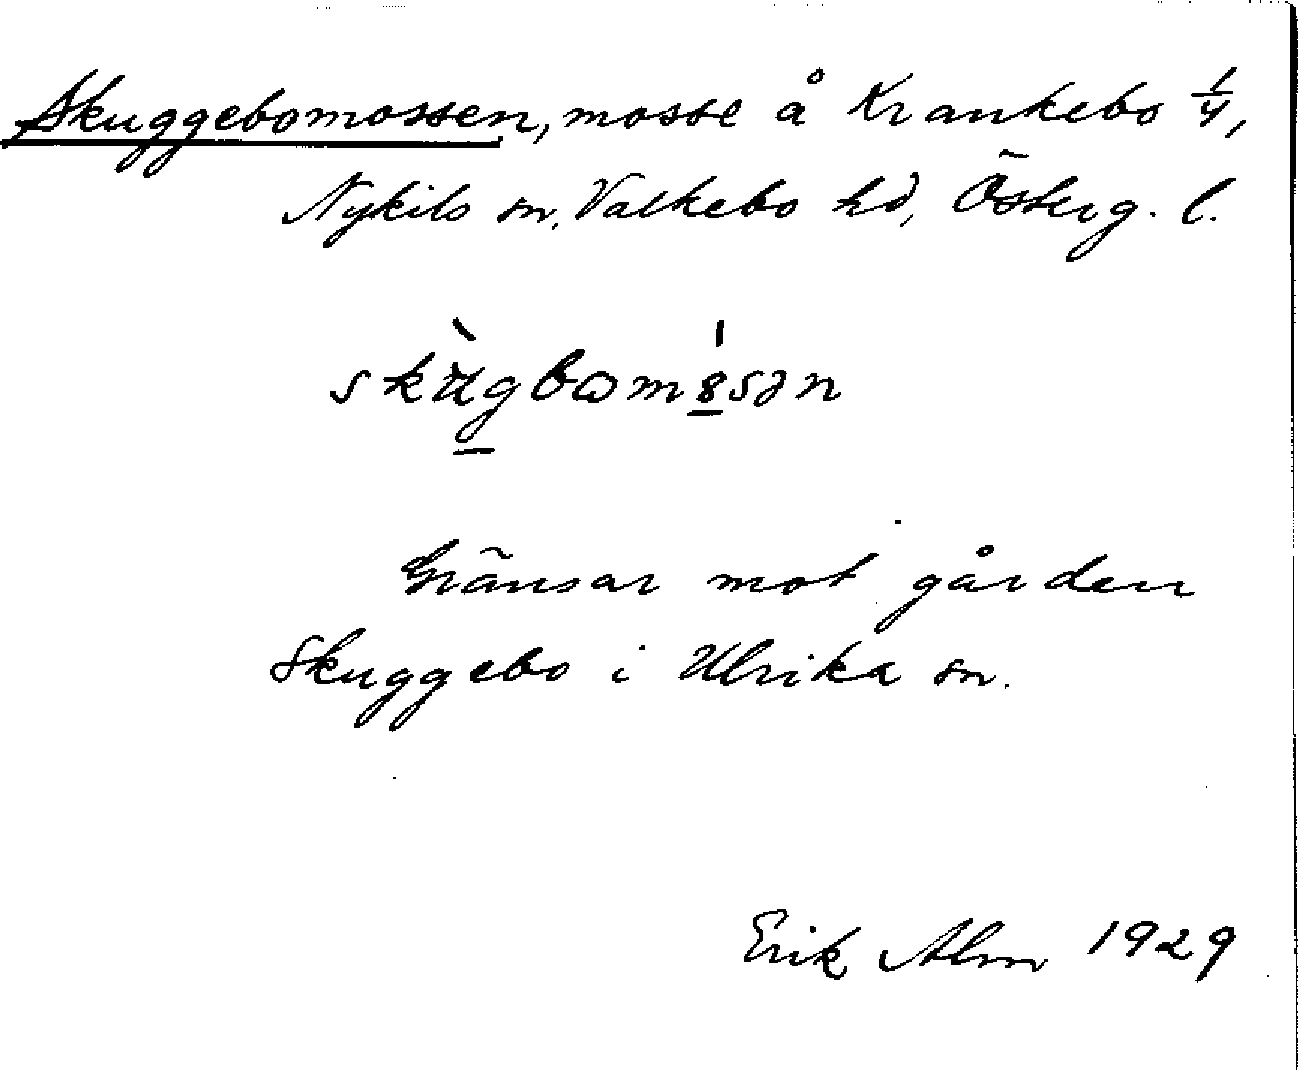 Skuggebomossen, mosse å Krankebo 1/4,
Nykils sn, Valkebo hd, Österg. l.
skùgbωm8sən
Gränsar mot gården
Skuggebo i Ulrika sn.
Erik Alm 1929